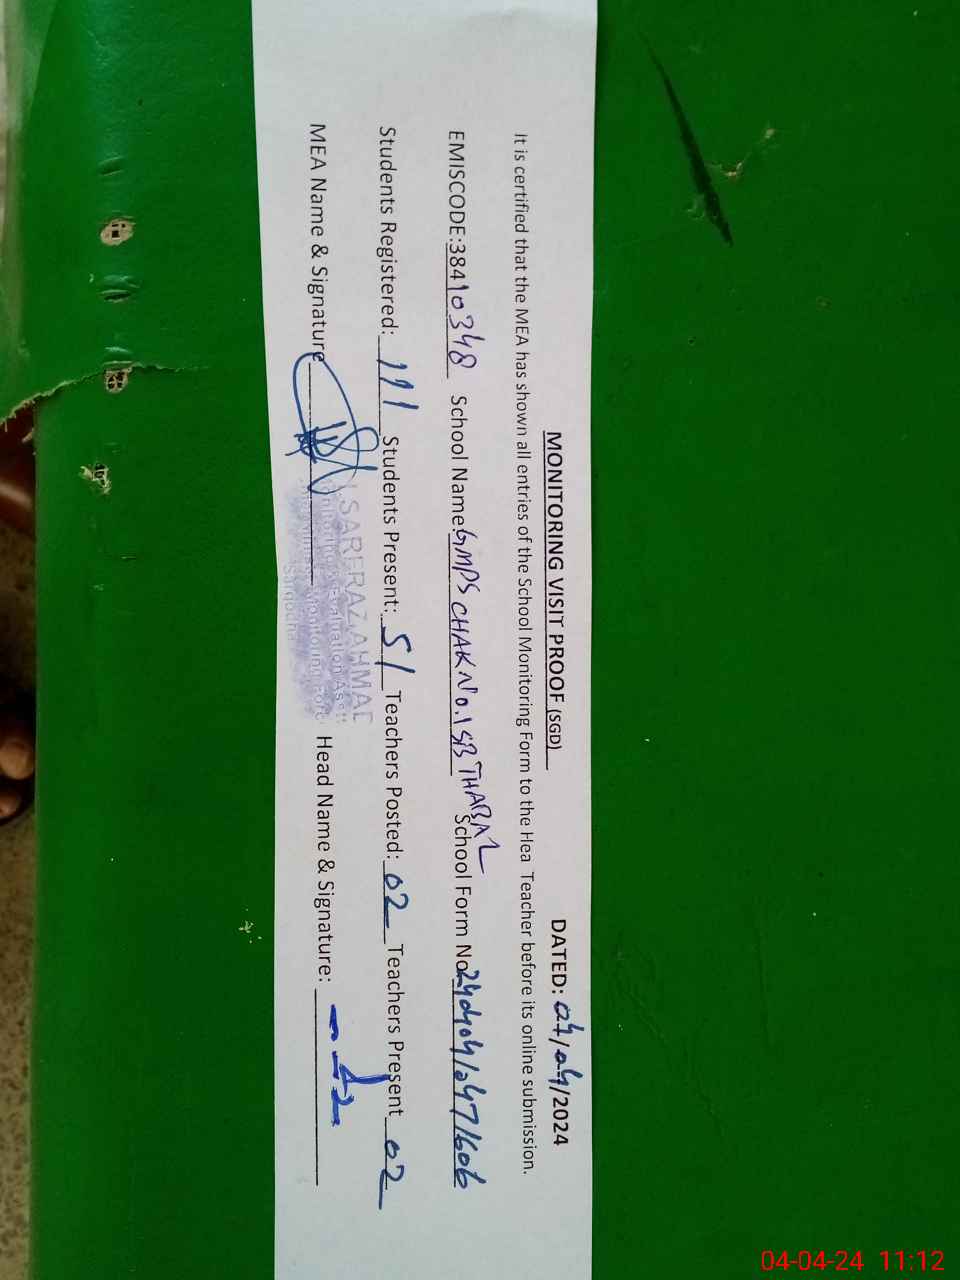 MONITORING VISIT PROOF (SGD) DATED: 04/04/2024
It is certified that the MEA has shown all entries of the School Monitoring Form to the Hea Teacher before its online submission.
EMISCODE:38410348 School Name:GMPS CHAK NO.1 SB THABAL School Form No.
Students Registered: 111 Students Present: 51 Teachers Posted: 02 Teachers Present 02
MEA Name & Signature Head Name & Signature:
SARFRAZ AHMAD
Monitoring Evaluation Assi
Monitoring Force
Sargodha
04-04-24 11:12